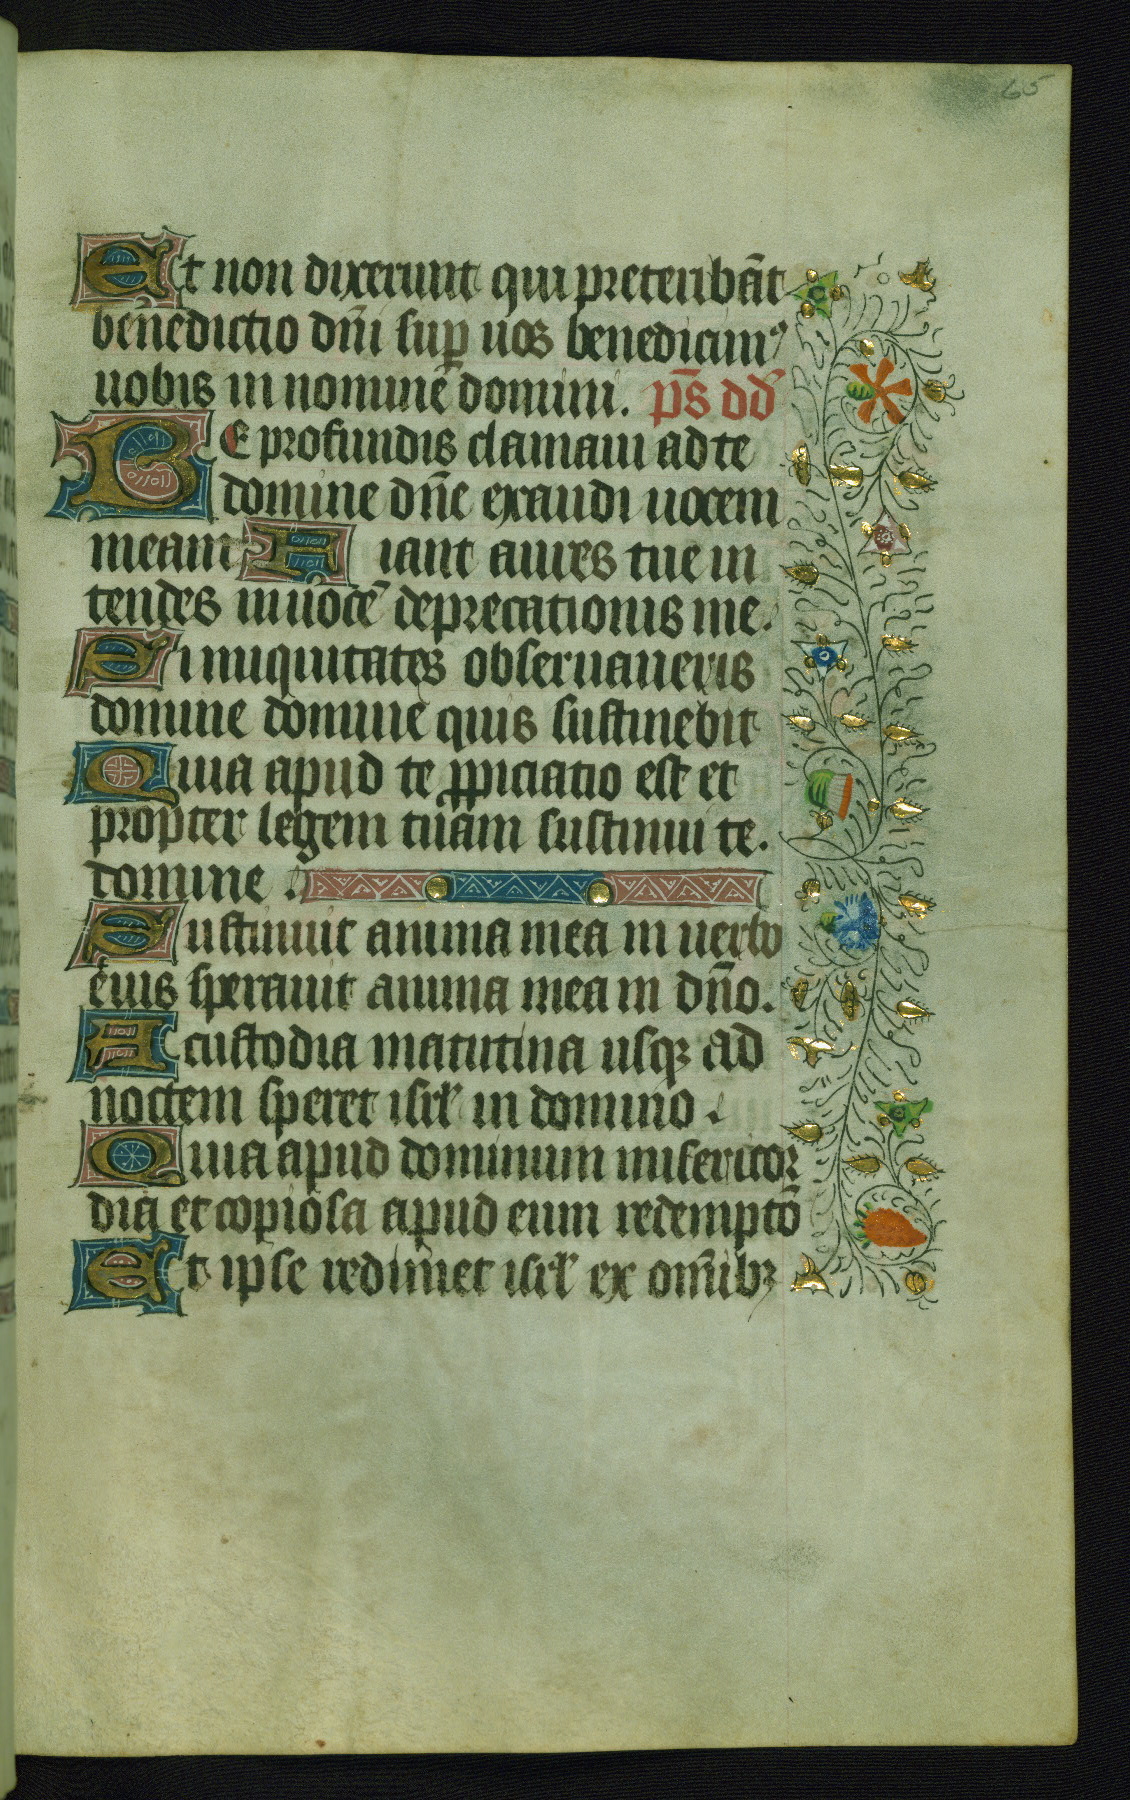 65
Et non dixerunt qui preteribāt
benedictio dn̄i sup̱ uos benediximꝰ
uobis in nomine domini. p̄s dd̄
DE profundis clamaui ad te
domine dn̄e exaudi uocem
meam Fiant aures tue in
tendes in uocē deprecationis me.
Si iniquitates obseruaueris
domine domine quis sustinebit
Quia apud te ꝓpiciatio est et
propter legem tuam sustinui te.
domine.
Sustinuit anima mea in uerbo
eius sperauit anima mea in dn̄o.
A custodia matutina usqꝫ ad
noctem speret isrl̄ in domino.
Quia apud dominum misericor
dia et copiosa apud eum redemptō
Et ipse redimet isrl̄ ex om̄ibꝫ